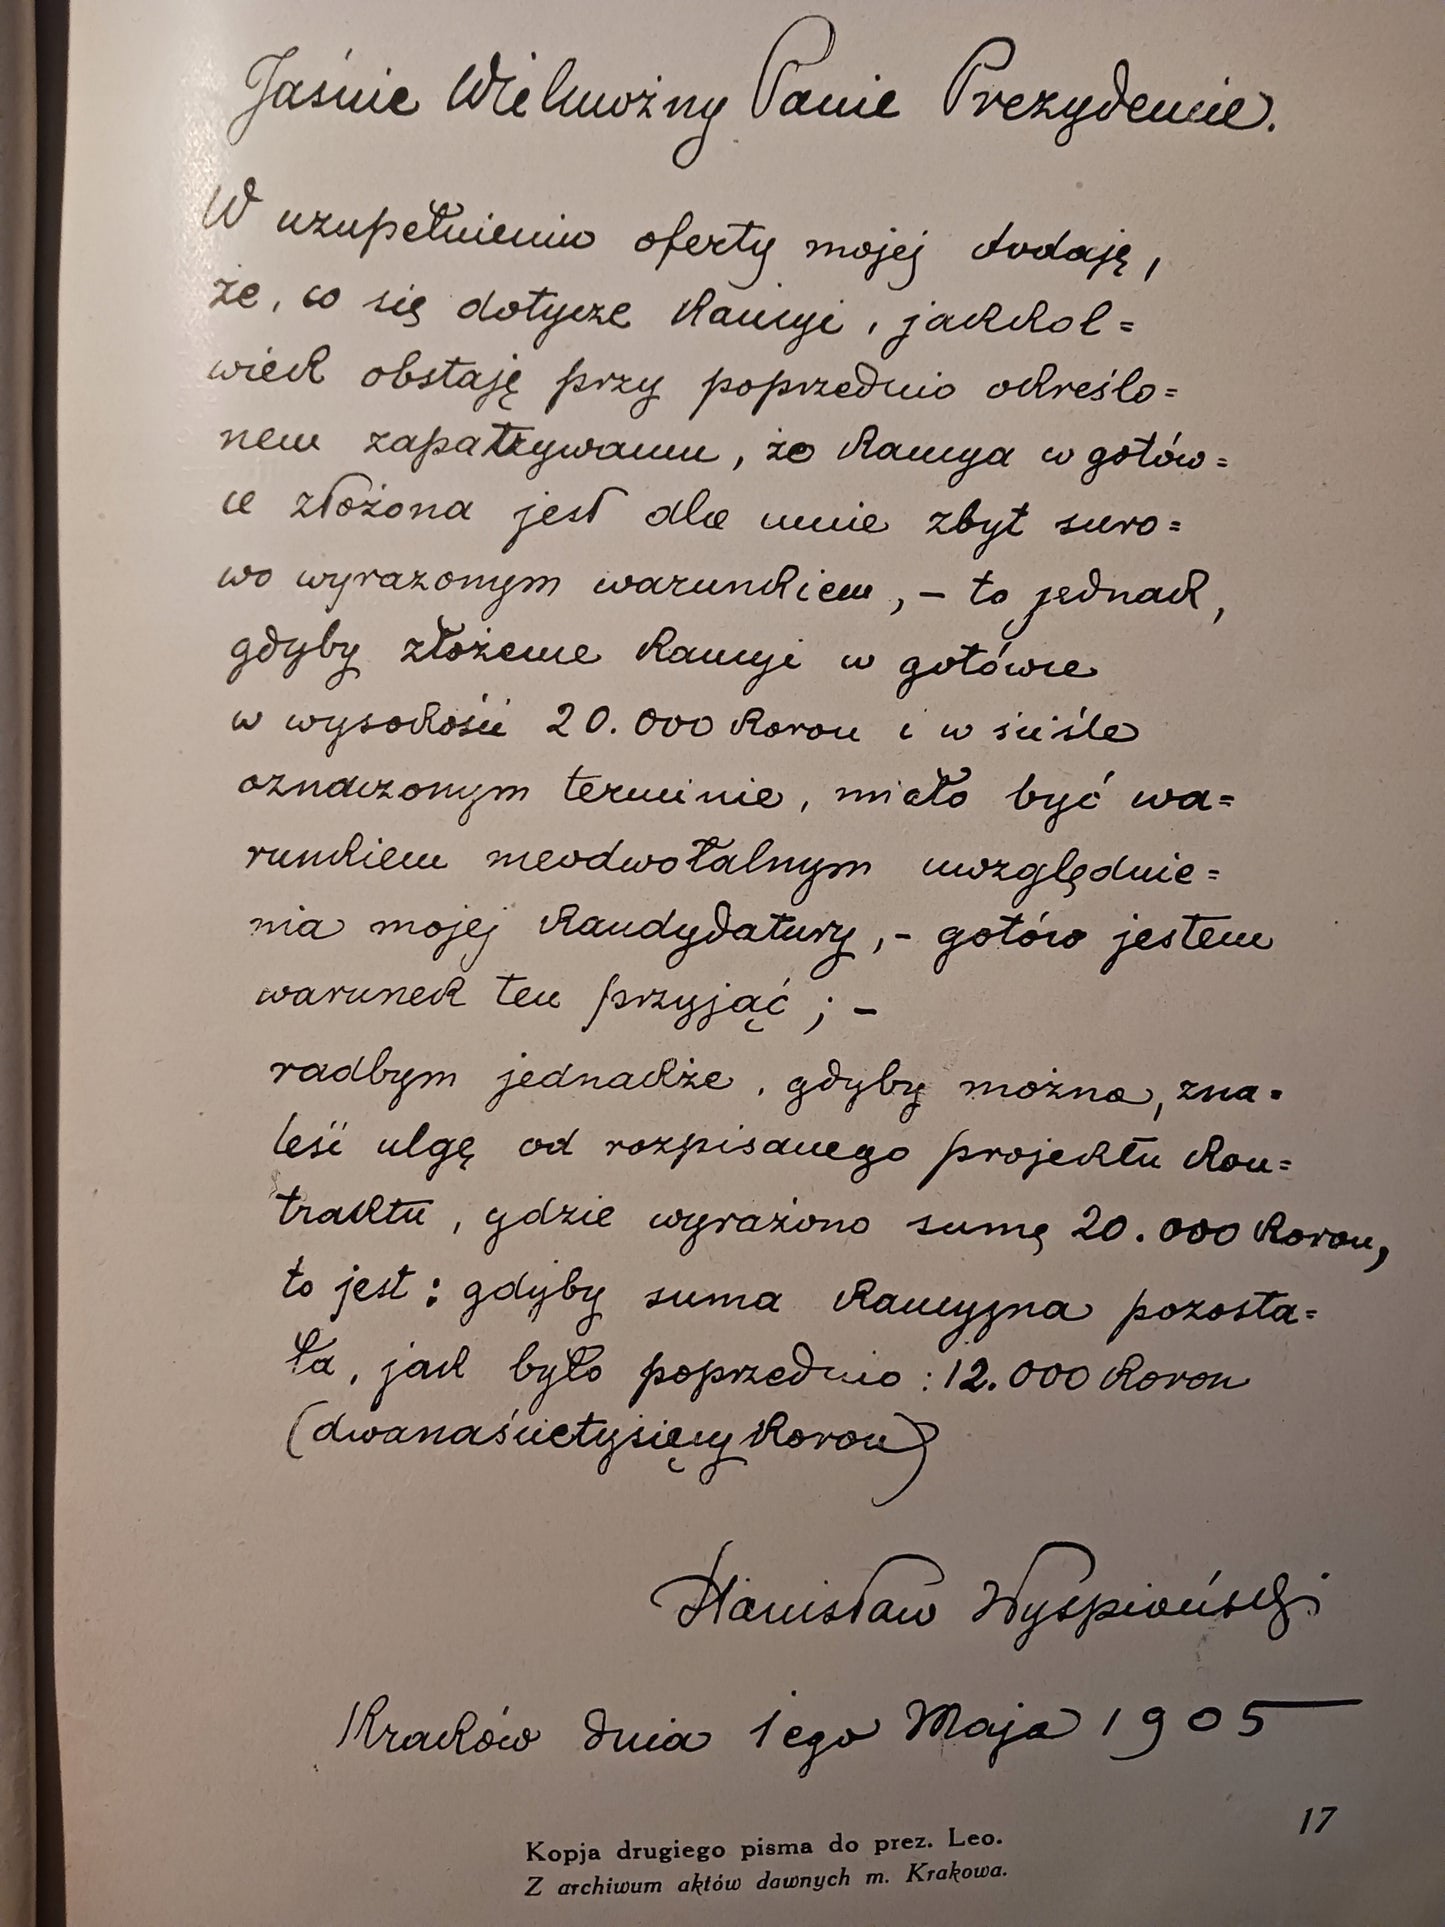 Jaśnie Wielmożny Panie Prezydencie.
W uzupełnieniu oferty mojej dodaję,
że, co się dotycze Kaucyi, jakkol=
wiek obstaję przy poprzednio okreśło=
nem zapatrywaniu, że Kaucya w gotów=
ce złożona jest dla mnie zbyt suro=
wo wyrażonym warunkiem, – to jednak,
gdyby złożenie Kaucyi w gotówce
w wysokości 20.000 Koron i w ściśle
oznaczonym terminie, miało być wa=
runkiem nieodwołalnym uwzględnie=
nia mojej Kandydatury, – gotów jestem
warunek ten przyjąć; –
radbym jednakże, gdyby można, zna=
leść ulgę od rozpisanego projektu Kon=
traktu, gdzie wyrażono sumę 20.000 Koron,
to jest: gdyby suma Kaucyjna pozosta=
ła, jak było poprzednio: 12.000 Koron
(dwanaścietysięcy Koron)
Stanisław Wyspiański
Kraków dnia 1ego Maja 1905
17
Kopja drugiego pisma do prez. Leo.
Z archiwum aktów dawnych m. Krakowa.